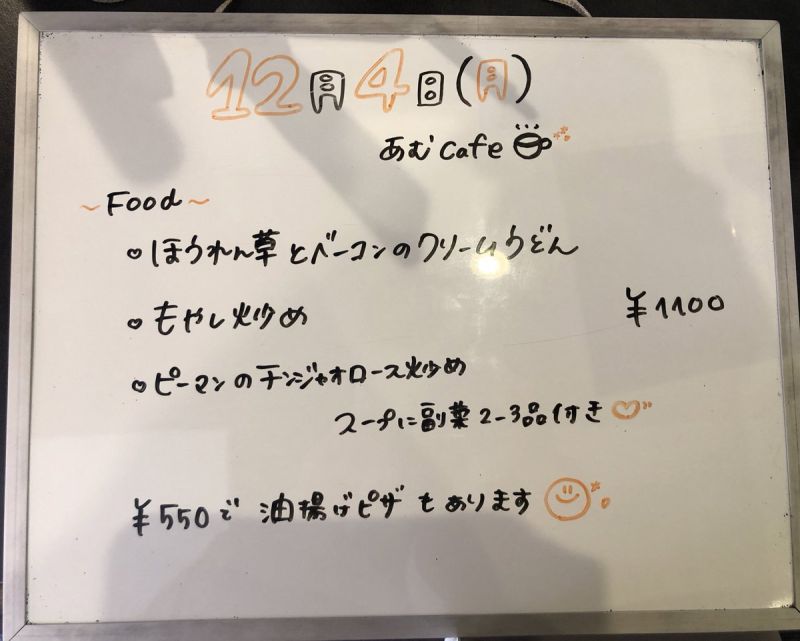 12月4日(月)
あむcafe
~Food~
ほうれん草とベーコンのクリームうどん
もやし炒め
¥1100
ピーマンのチンジャオロース炒め
スープに副菜2-3品付き
¥550で 油揚げピザもあります